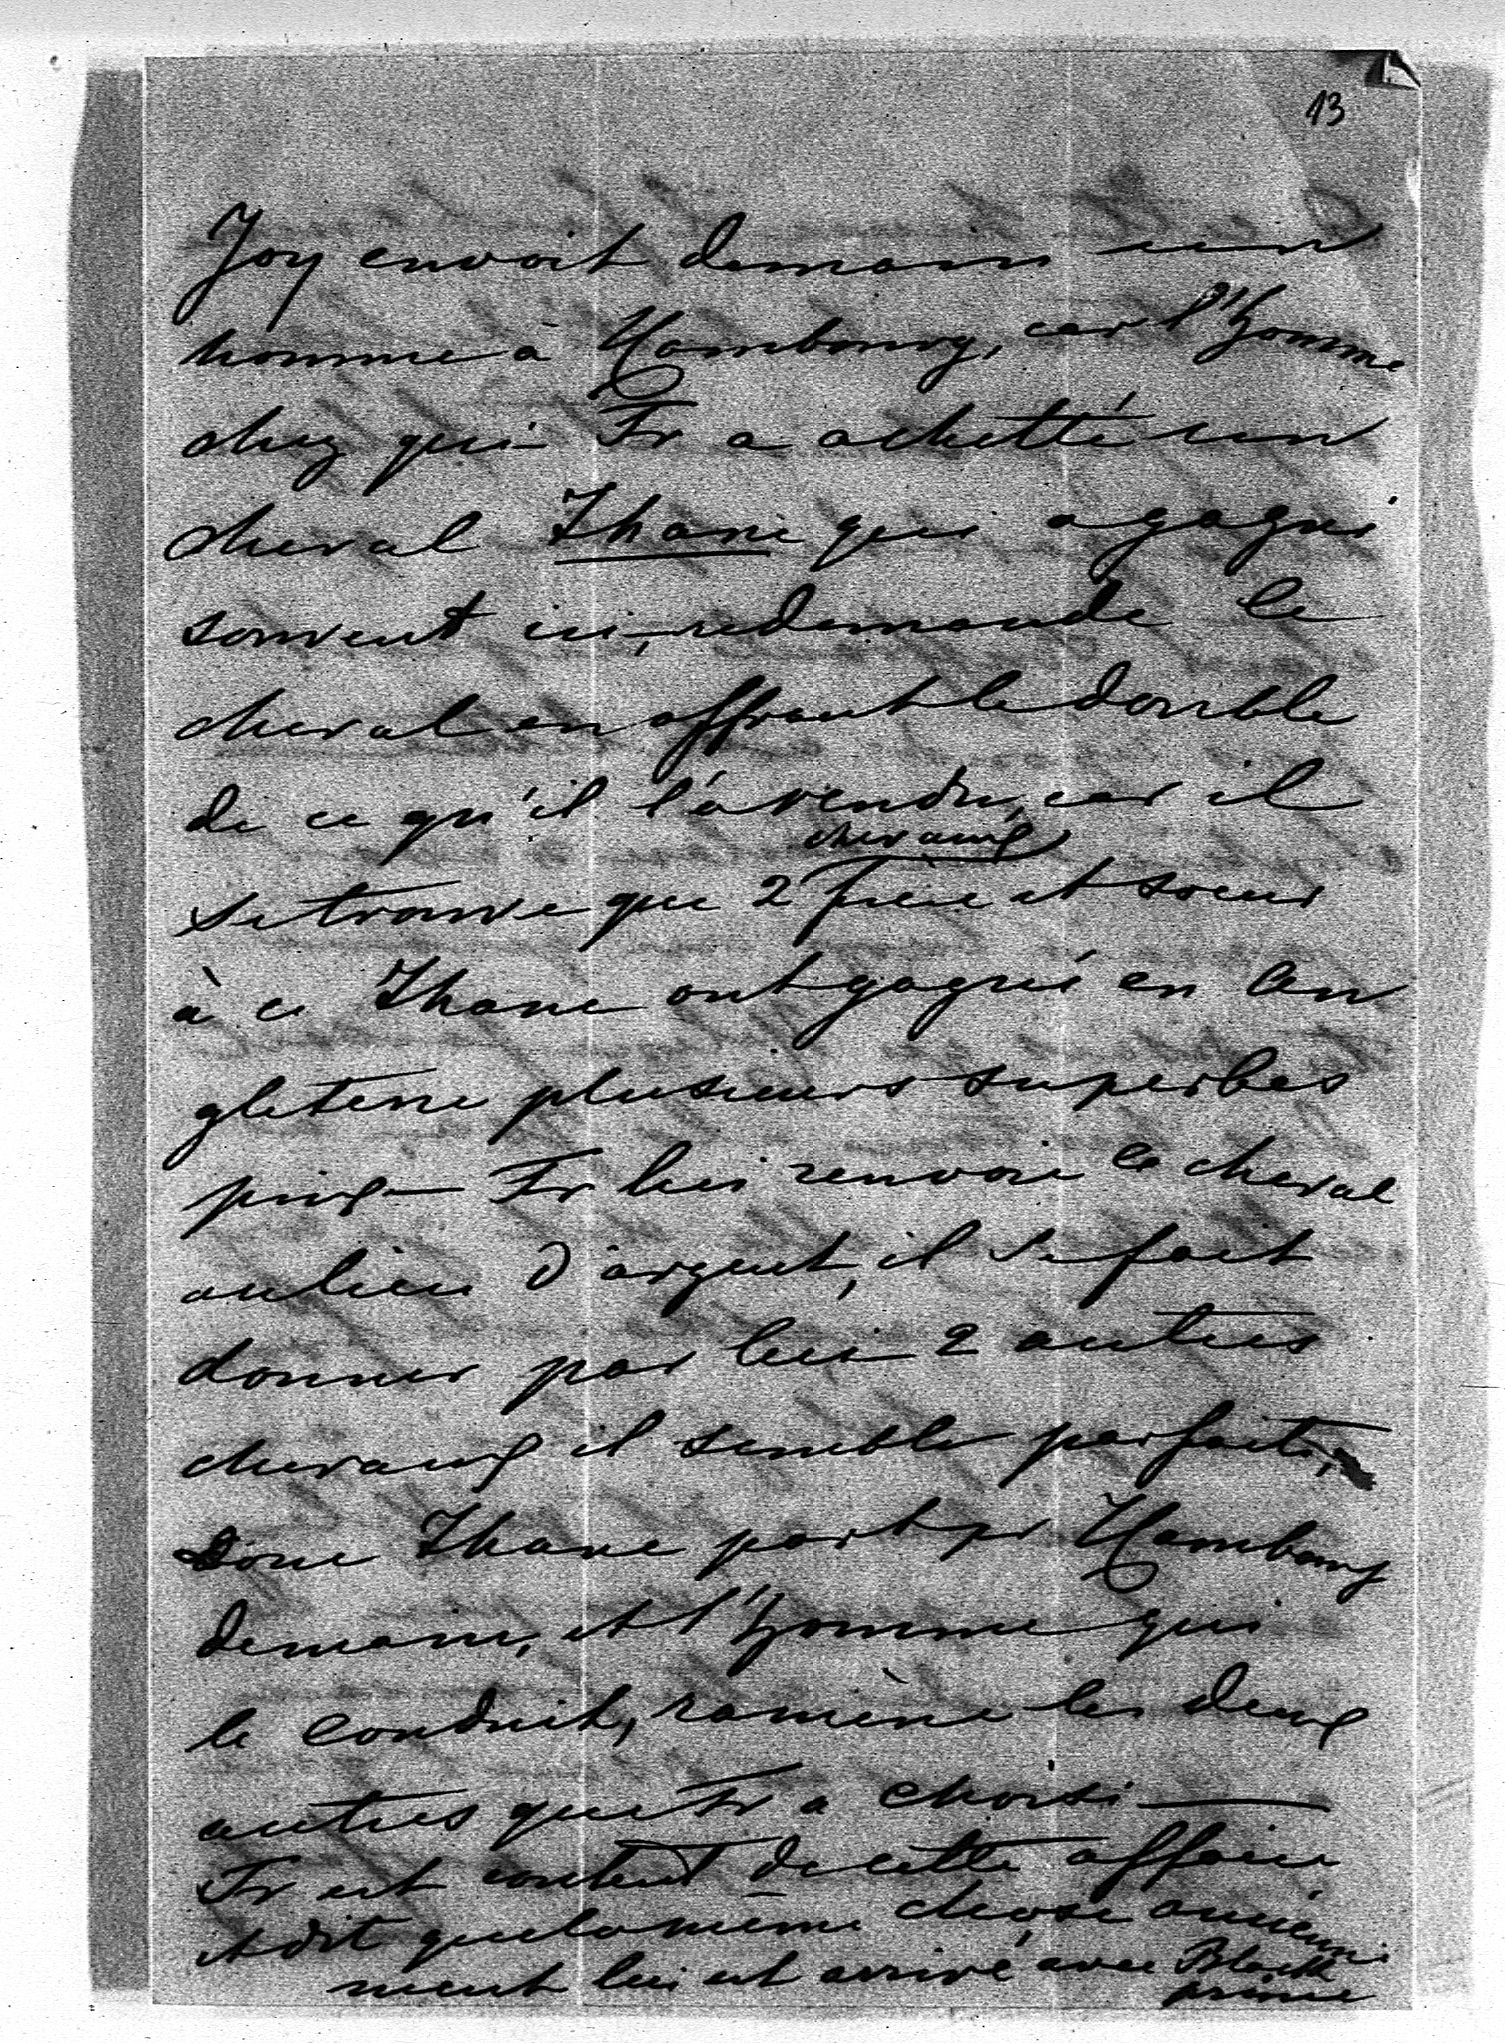 13
Joy envoit demain un
homme à Hambourg, car l'homme
chez qui Fr a achetté un
cheval Thane qui a gagné
souvent ici, redemande le
cheval en offrant le double
de ce qu'il l'a vendu, car il
chevaux
se trouve que 2 frère et soeur
à ce Thane ont gagné en An
gleterre plusieurs superbes
prix — Fr lui renvoie le cheval
aulieu d'argent, il se fait
donner par lui 2 autres
chevaux il semble parfaits,
Donc Thane part pr Hambourg
demain, et l'homme qui
le conduit, ramène les deux
autres que Fr a choisi —
Fr est content de cette affaire
et dit que la même chose ancienne
ment lui est arrivé avec Black
prince